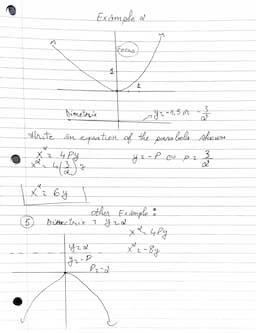 Example 2
Focus
1
1
Directrix
y = -1,5 or -3/2
Write an equation of the parabola shown
x² = 4Py
y = -P ∞ P = 3/2
x² = 4(3/2)y
x² = 6y
other Example :
⑤ Directrix : y = 2
x² = 4Py
y = 2
x² = -8y
y = -P
P = -2